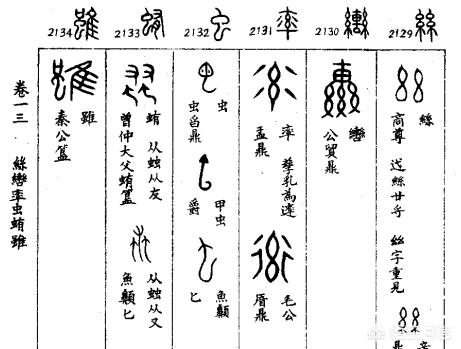 2129 絲
絲
高尊 迖絲廿孚
絲字重見
辛
鼎
2130 轡
轡
公貿鼎
2131 率
率 孳乳為達
盂鼎
毛公
厝鼎
2132 虫
虫
虫䏍鼎
甲虫
爵
魚顛
匕
2133
蛕 从䖵从友
曾仲大父蛕簋
从䖵从又
魚顛匕
2134 雖
雖
秦公簋
卷一三 絲轡率虫蛕雖